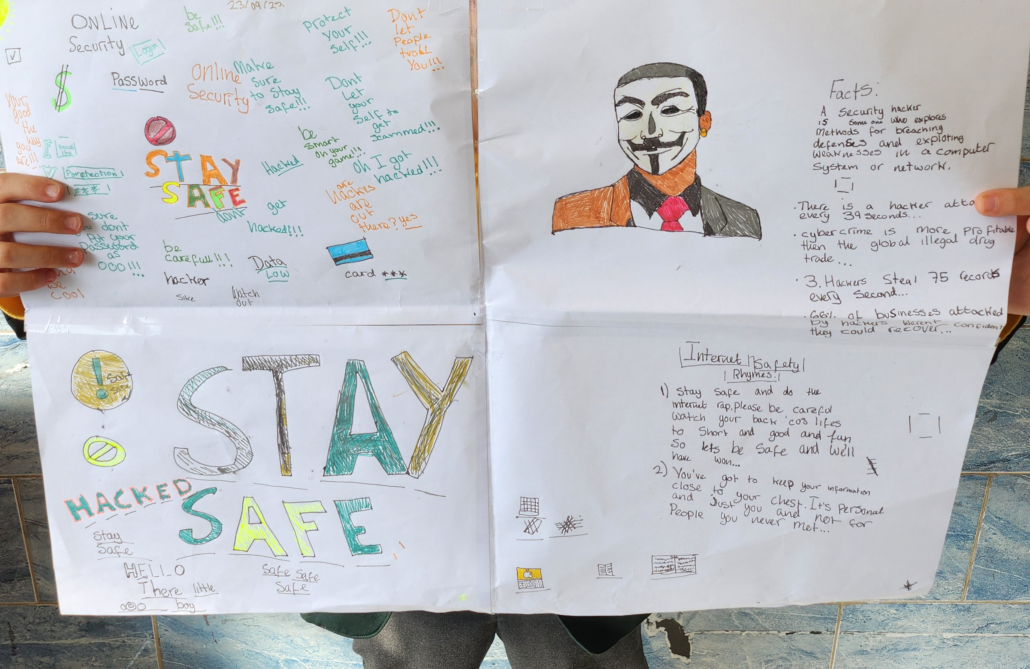 23/09/22
ONLINE
Security
Login
be
Safe!!!
Protect
your
self!!!
Dont
let
People
trobl
You!!!
$
PassWord
Online
Security
Make
sure
to stay
safe!!!
Dont
Let
your
self to
get
scammed!!!
STAY
SAFE
Hacked
be
Smart
on your
game!!!
Oh I got
hacked!!!
Protection
***!
dont get
Hacked!!!
are
Hackers
are
out
there? yes
sure
dont
Put your
Password
as
000!!!
be
carefull!!!
hacker
Data
Low
card ***
Watch
out
be
Cool
Facts:
A Security hacker
is someone who explores
Methods for breaching
defenses and exploiting
weaknesses in a computer
System or network.
• There is a hacker atta
every 39 seconds...
• cybercrime is more profitable
then the global illegal drug
trade...
• 3. Hackers Steal 75 records
every second...
• 66% of businesses attacked
by hackers werent confident
they could recover...
STAY
HACKED
SAFE
Stay
Safe
HELLO
There little
boy
Safe Safe
Safe
Internet Safety
Rhymes
1) Stay safe and do the
internet rap, Please be careful
Watch your back 'cos lifes
to short and good and fun
So lets be safe and we'll
have won...
2) You've got to keep your information
close to your chest. It's Personal
and Just you and not for
People you never met...